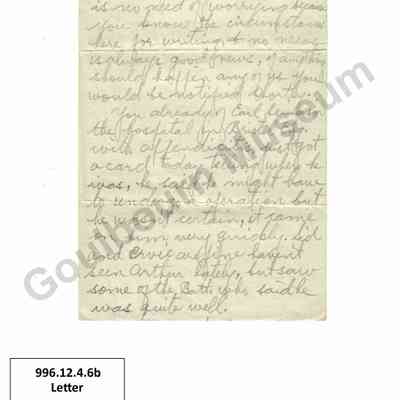 is no need of worrying because
you know the circumstances
here for writing & no news
is always good news, if anything
should happen any of us you
would be notified shortly.
You already of Earl being in
the hospital in
with appendicitis just got
a card today telling where he
was, he said he might have
to undergo operation but
he wasn't certain, it came
on him very quickly. Sid
and Ervie are fine havent
seen Arthur lately, but saw
some of the Batt. who said he
was quite well.
Goulbourn Museum
996.12.4.6b
Letter